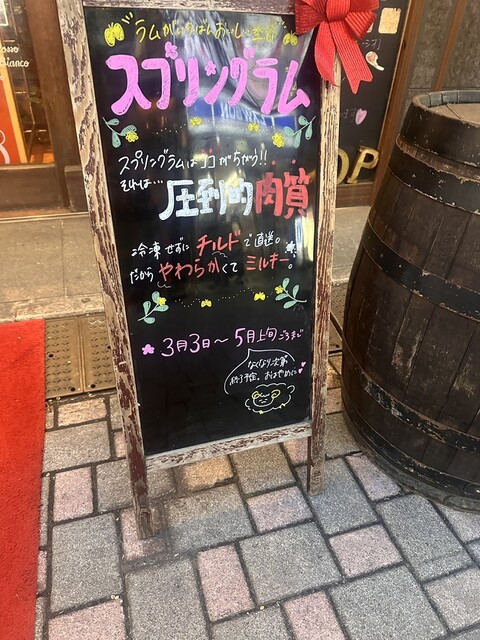 ラムがいちばんおいしい季節
スプリングラム
スプリングラムはココがちがう!!
それは…
圧倒的肉質
冷凍せずにチルドで直送。
だからやわらかくてミルキー。
3月3日〜5月上旬ごろまで
なくなり次第
終了予定。おはやめに♥
bianco
OP